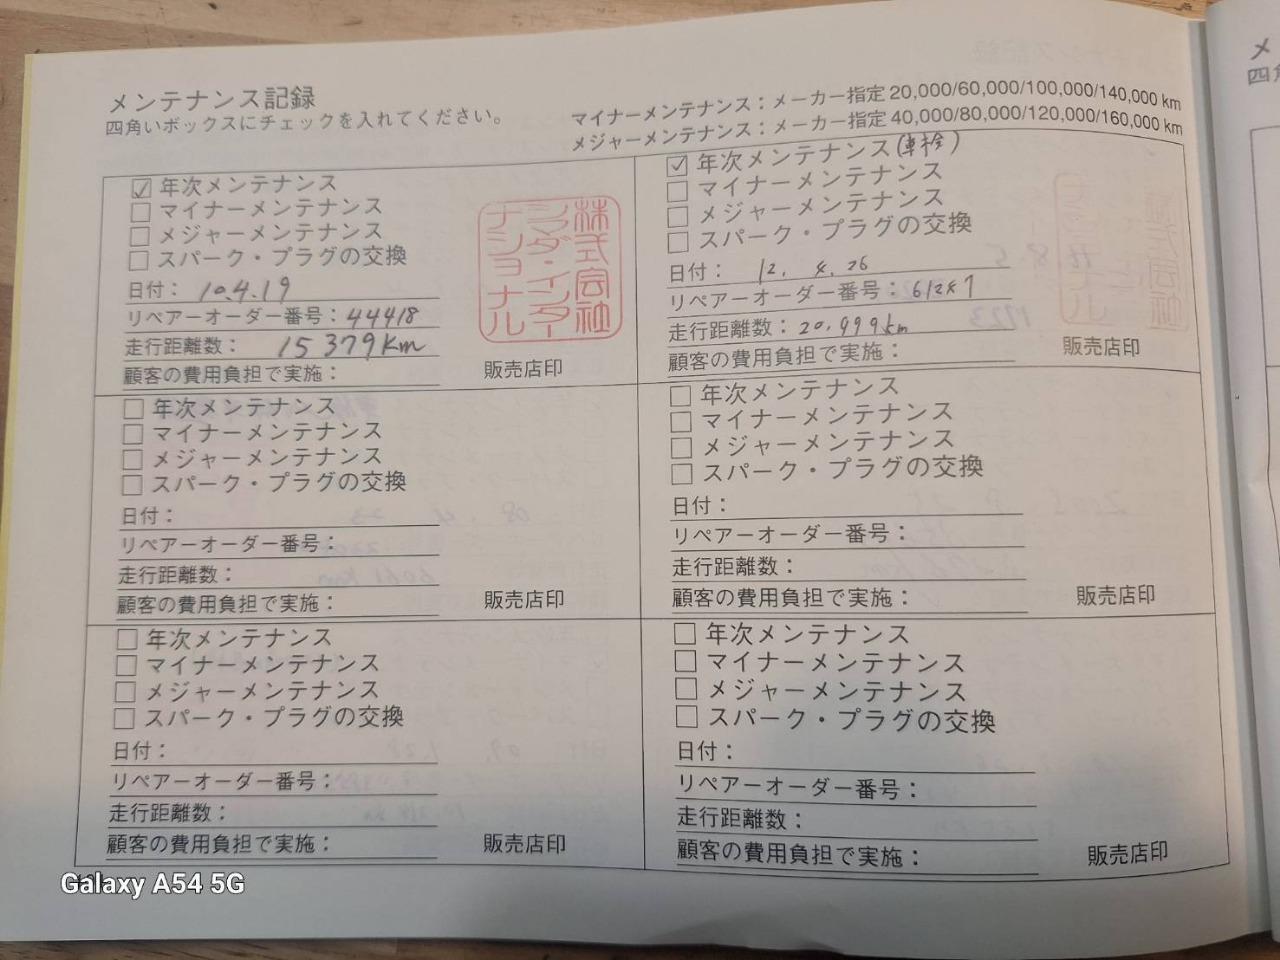 メンテナンス記録
四角いボックスにチェックを入れてください。
マイナーメンテナンス：メーカー指定 20,000/60,000/100,000/140,000 km
メジャーメンテナンス：メーカー指定 40,000/80,000/120,000/160,000 km
年次メンテナンス
マイナーメンテナンス
メジャーメンテナンス
スパーク・プラグの交換
日付： 10.4.19
リペアーオーダー番号：44418
走行距離数： 15379Km
顧客の費用負担で実施：
販売店印
株式会社
シマダ・インター
ナショナル
年次メンテナンス(車検)
マイナーメンテナンス
メジャーメンテナンス
スパーク・プラグの交換
日付： 12. 4. 26
リペアーオーダー番号：
走行距離数：20,999km
顧客の費用負担で実施：
販売店印
年次メンテナンス
マイナーメンテナンス
メジャーメンテナンス
スパーク・プラグの交換
日付：
リペアーオーダー番号：
走行距離数：
顧客の費用負担で実施：
販売店印
年次メンテナンス
マイナーメンテナンス
メジャーメンテナンス
スパーク・プラグの交換
日付：
リペアーオーダー番号：
走行距離数：
顧客の費用負担で実施：
販売店印
年次メンテナンス
マイナーメンテナンス
メジャーメンテナンス
スパーク・プラグの交換
日付：
リペアーオーダー番号：
走行距離数：
顧客の費用負担で実施：
販売店印
年次メンテナンス
マイナーメンテナンス
メジャーメンテナンス
スパーク・プラグの交換
日付：
リペアーオーダー番号：
走行距離数：
顧客の費用負担で実施：
販売店印
Galaxy A54 5G